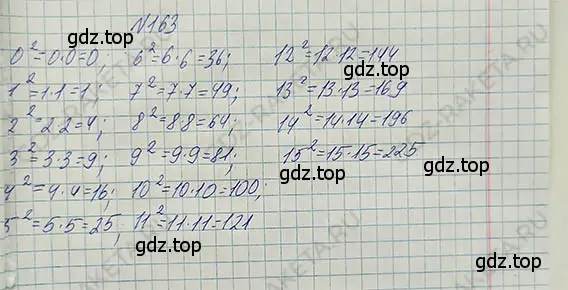 №163
0²=0·0=0; 6²=6·6=36; 12²=12·12=144
1²=1·1=1; 7²=7·7=49; 13²=13·13=169
2²=2·2=4; 8²=8·8=64; 14²=14·14=196
3²=3·3=9; 9²=9·9=81; 15²=15·15=225
4²=4·4=16; 10²=10·10=100;
5²=5·5=25; 11²=11·11=121
gdz.top
gdz.top
gdz.top
gdz.top
gdz.top
gdz.top